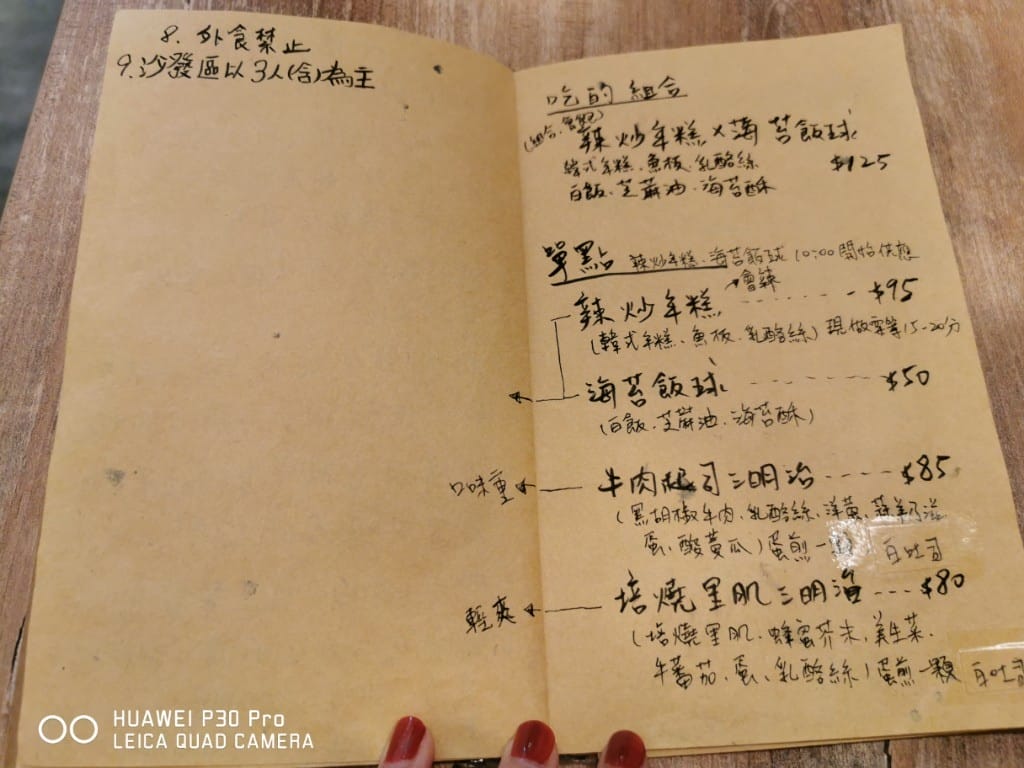 8. 外食禁止
9. 沙發區以3人(含)為主
吃的組合
辣炒年糕×海苔飯球
韓式年糕、魚板、乳酪絲 $125
白飯、芝麻油、海苔酥
單點 辣炒年糕、海苔飯球 10:00開始供應
會辣
辣炒年糕 - - - - - - $95
(韓式年糕、魚板、乳酪絲) 現做需等15-20分
海苔飯球 - - - - - - - $50
(白飯、芝麻油、海苔酥)
口味重 牛肉起司三明治 - - - - $85
(黑胡椒牛肉、乳酪絲、洋蔥、美乃滋
蛋、酸黃瓜) 蛋煎一顆 白吐司
輕爽 培燒里肌三明治 - - - $80
(培燒里肌、蜂蜜芥末、美生菜、
牛蕃茄、蛋、乳酪絲) 蛋煎一顆 白吐司
HUAWEI P30 Pro
LEICA QUAD CAMERA